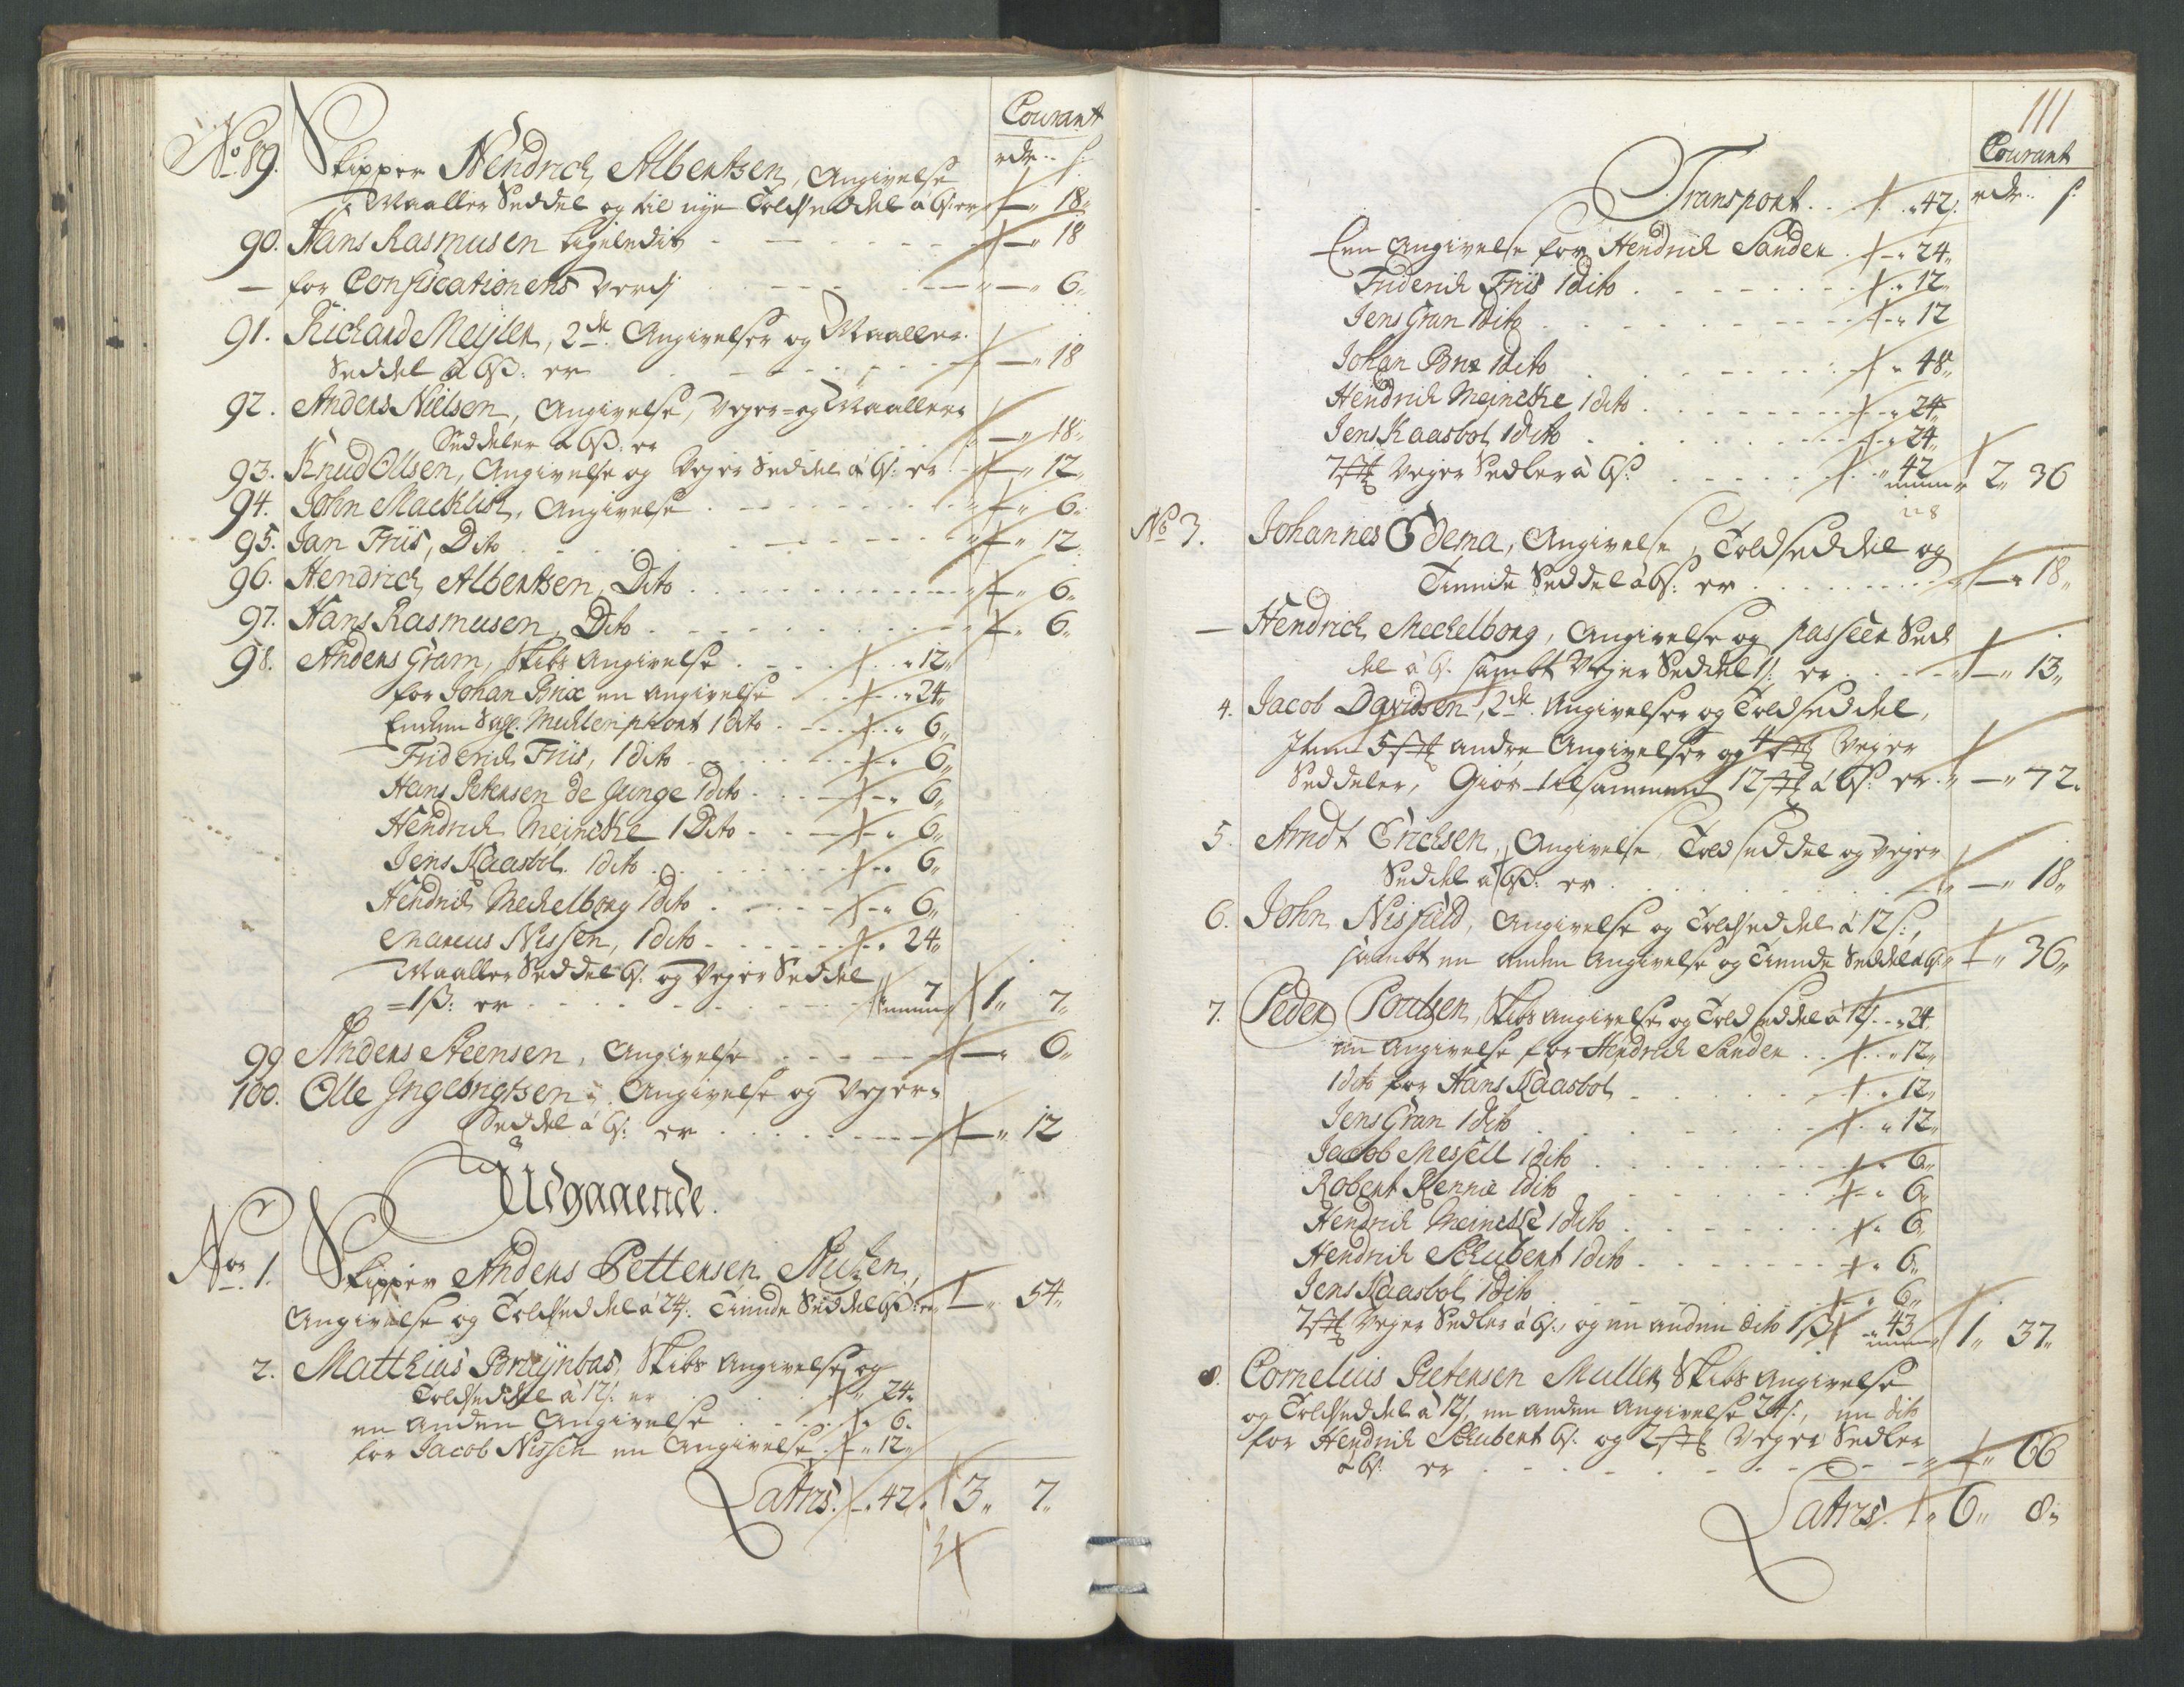 Courant
rdr. ſ:
No. 89. Skipper Hendrich Albertsen, Angivelse
Maaller Seddel og til nye Toldseddel à 6ſ: er - " 18 "
90. Hans Rasmusen ligeledis - " 18
— for Confiscationens Værdj - " 6 "
91. Richard Mejler, 2de Angivelser og Maaller
Seddel à 6ß: er - " 18
92. Anders Nielsen, Angivelse, Vejer- og Maaller
Seddeler à 6ß: er - " 18 "
93. Knud Ollsen, Angivelse og Vejer Seddel à 6ſ: er - " 12 "
94. John Macklish, Angivelse " 6 "
95. Jan Friis, Dito " 12 "
96. Hendrich Albertsen, Dito " 6 "
97. Hans Rasmusen, Dito " 6 "
98. Anders Gram, Skibs Angivelse " 12 "
for Johan Brix en angivelse " 24 "
Enchen Sal. Muhlenphort 1 dito " 6 "
Friderich Friis, 1 dito " 6 "
Hans Petersen de Junge 1 dito " 6 "
Hendrich Meincke 1 Dito " 6 "
Jens Kaasbøl 1 dito " 6 "
Hendrich Mechelborg 1 dito " 6 "
Marcus Nissen, 1 dito " 24 "
Maaller Seddel 6ſ: og Vejer Seddel
1ß: er 7 1 " 7 "
99. Anders Steensen, Angivelse - " 6 "
100. Olle Ingebrigtsen, Angivelse og Vejer-
Seddel à 6ſ: er - " 12
Udgaaende.
No. 1. Skipper Anders Pettersen
Angivelse og Toldseddel à 24ſ. Tiende Seddel 6ß: er " 54 "
2. Matthias Bruynbas, Skibs Angivelse og
Toldseddel à 12ſ: er " 24 "
en anden Angivelse " 6 "
for Jacob Nissen en Angivelse " 12 "
Latus. - " 42 " 3 " 7 "
111
Courant
rdr. ſ:
Transport " 42 ſ:
Een Angivelse for Hendrich Sander " 24 "
Friderich Friis 1 dito " 12 "
Jens Gran 1 dito " 12
Johan Brix 1 dito " 48 "
Hendrich Meincke 1 dito " 24 "
Jens Kaasbøl 1 dito " 24 "
7 st Vejer Sedler à 6ß " 42 2 " 36
No 3. Johannes Odema, Angivelse, Toldseddel og
Tiende Seddel à 6ſ: er - " 18 "
— Hendrich Mechelborg, Angivelse og passeer Sed
del à 6ſ. sambt Vejer Seddel 1ſ: er - " 13 "
4. Jacob Davidsen, 2de Angivelser og Toldseddel,
Item 5 st andre Angivelser og 4 st Vejer
Seddeler, Giør tilsammen 12 st à 6ſ: er " - " 72 "
5. Arndt Erichsen, Angivelse, Toldseddel og Vejer
Seddel à 6ß: er - " 18 "
6. John Nisfield, Angivelse og Toldseddel à 12ſ:,
sambt en anden Angivelse og Tiende Seddel à 6ſ " 36 "
7. Peder Poulsen, Skibs angivelse og Toldseddel à 12ſ " 24
en Angivelse for Hendrich Sander " 12 "
1 dito for Hans Kaasbøl " 12 "
Jens Gran 1 dito " 12 "
Jacob Messell 1 dito " 6 "
Robert Rennie 1 dito " 6 "
Hendrich Meincke 1 dito " 6 "
Hendrich Schubert 1 dito " 6 "
Jens Kaasbøl 1 dito " 6 "
7 st Vejer Sedler à 6ſ:, og en anden dito 1ß " 43 1 " 37 "
8. Cornelius Pietersen Muller, Skibs Angivelse
og Toldseddel à 12ſ, en anden Angivelse 24ſ:, en dito
for Hendrich Schubert 6ſ. og 2 st Vejer Sedler
à 6ſ: er " 66
Latus. " 6 " 8 "